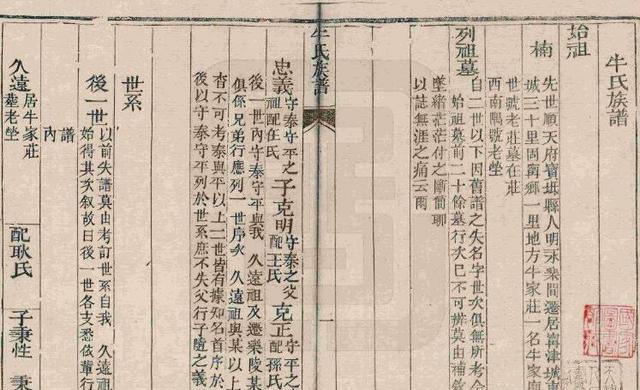 牛氏族譜
始祖
楠
先世順天府寶坻縣人明永樂間遷居寧津城東
城三十里固窮鄉一里地方牛家莊一名牛家
世號老莊墓在莊
西南隅號老塋
列祖墓
自二世以下因舊譜之失名字世次俱無所考今
始祖墓前二十餘墓行次已不可辨莫由補敘
墜緒茫茫付之斷簡聊
以誌無涯之痛云爾
牛氏族譜
一
忠義 守泰守平之祖配任氏 子克明 守泰之父配王氏 克正 守平之父配孫氏
後一世內守泰守平與我 久遠祖及遷樂陵某
俱係兄弟行應列一世序次 久遠祖與某以上
杳不可考泰與平以上二世皆有據知名首序於
後以守泰守平列於世系庶不失父行子隨之義
世系
後一世 以前失譜莫由考訂世系自我
始得其次敘故日後一世各支悉依輩行
譜內
久遠 居牛家莊葬老塋 配耿氏 子秉性 秉